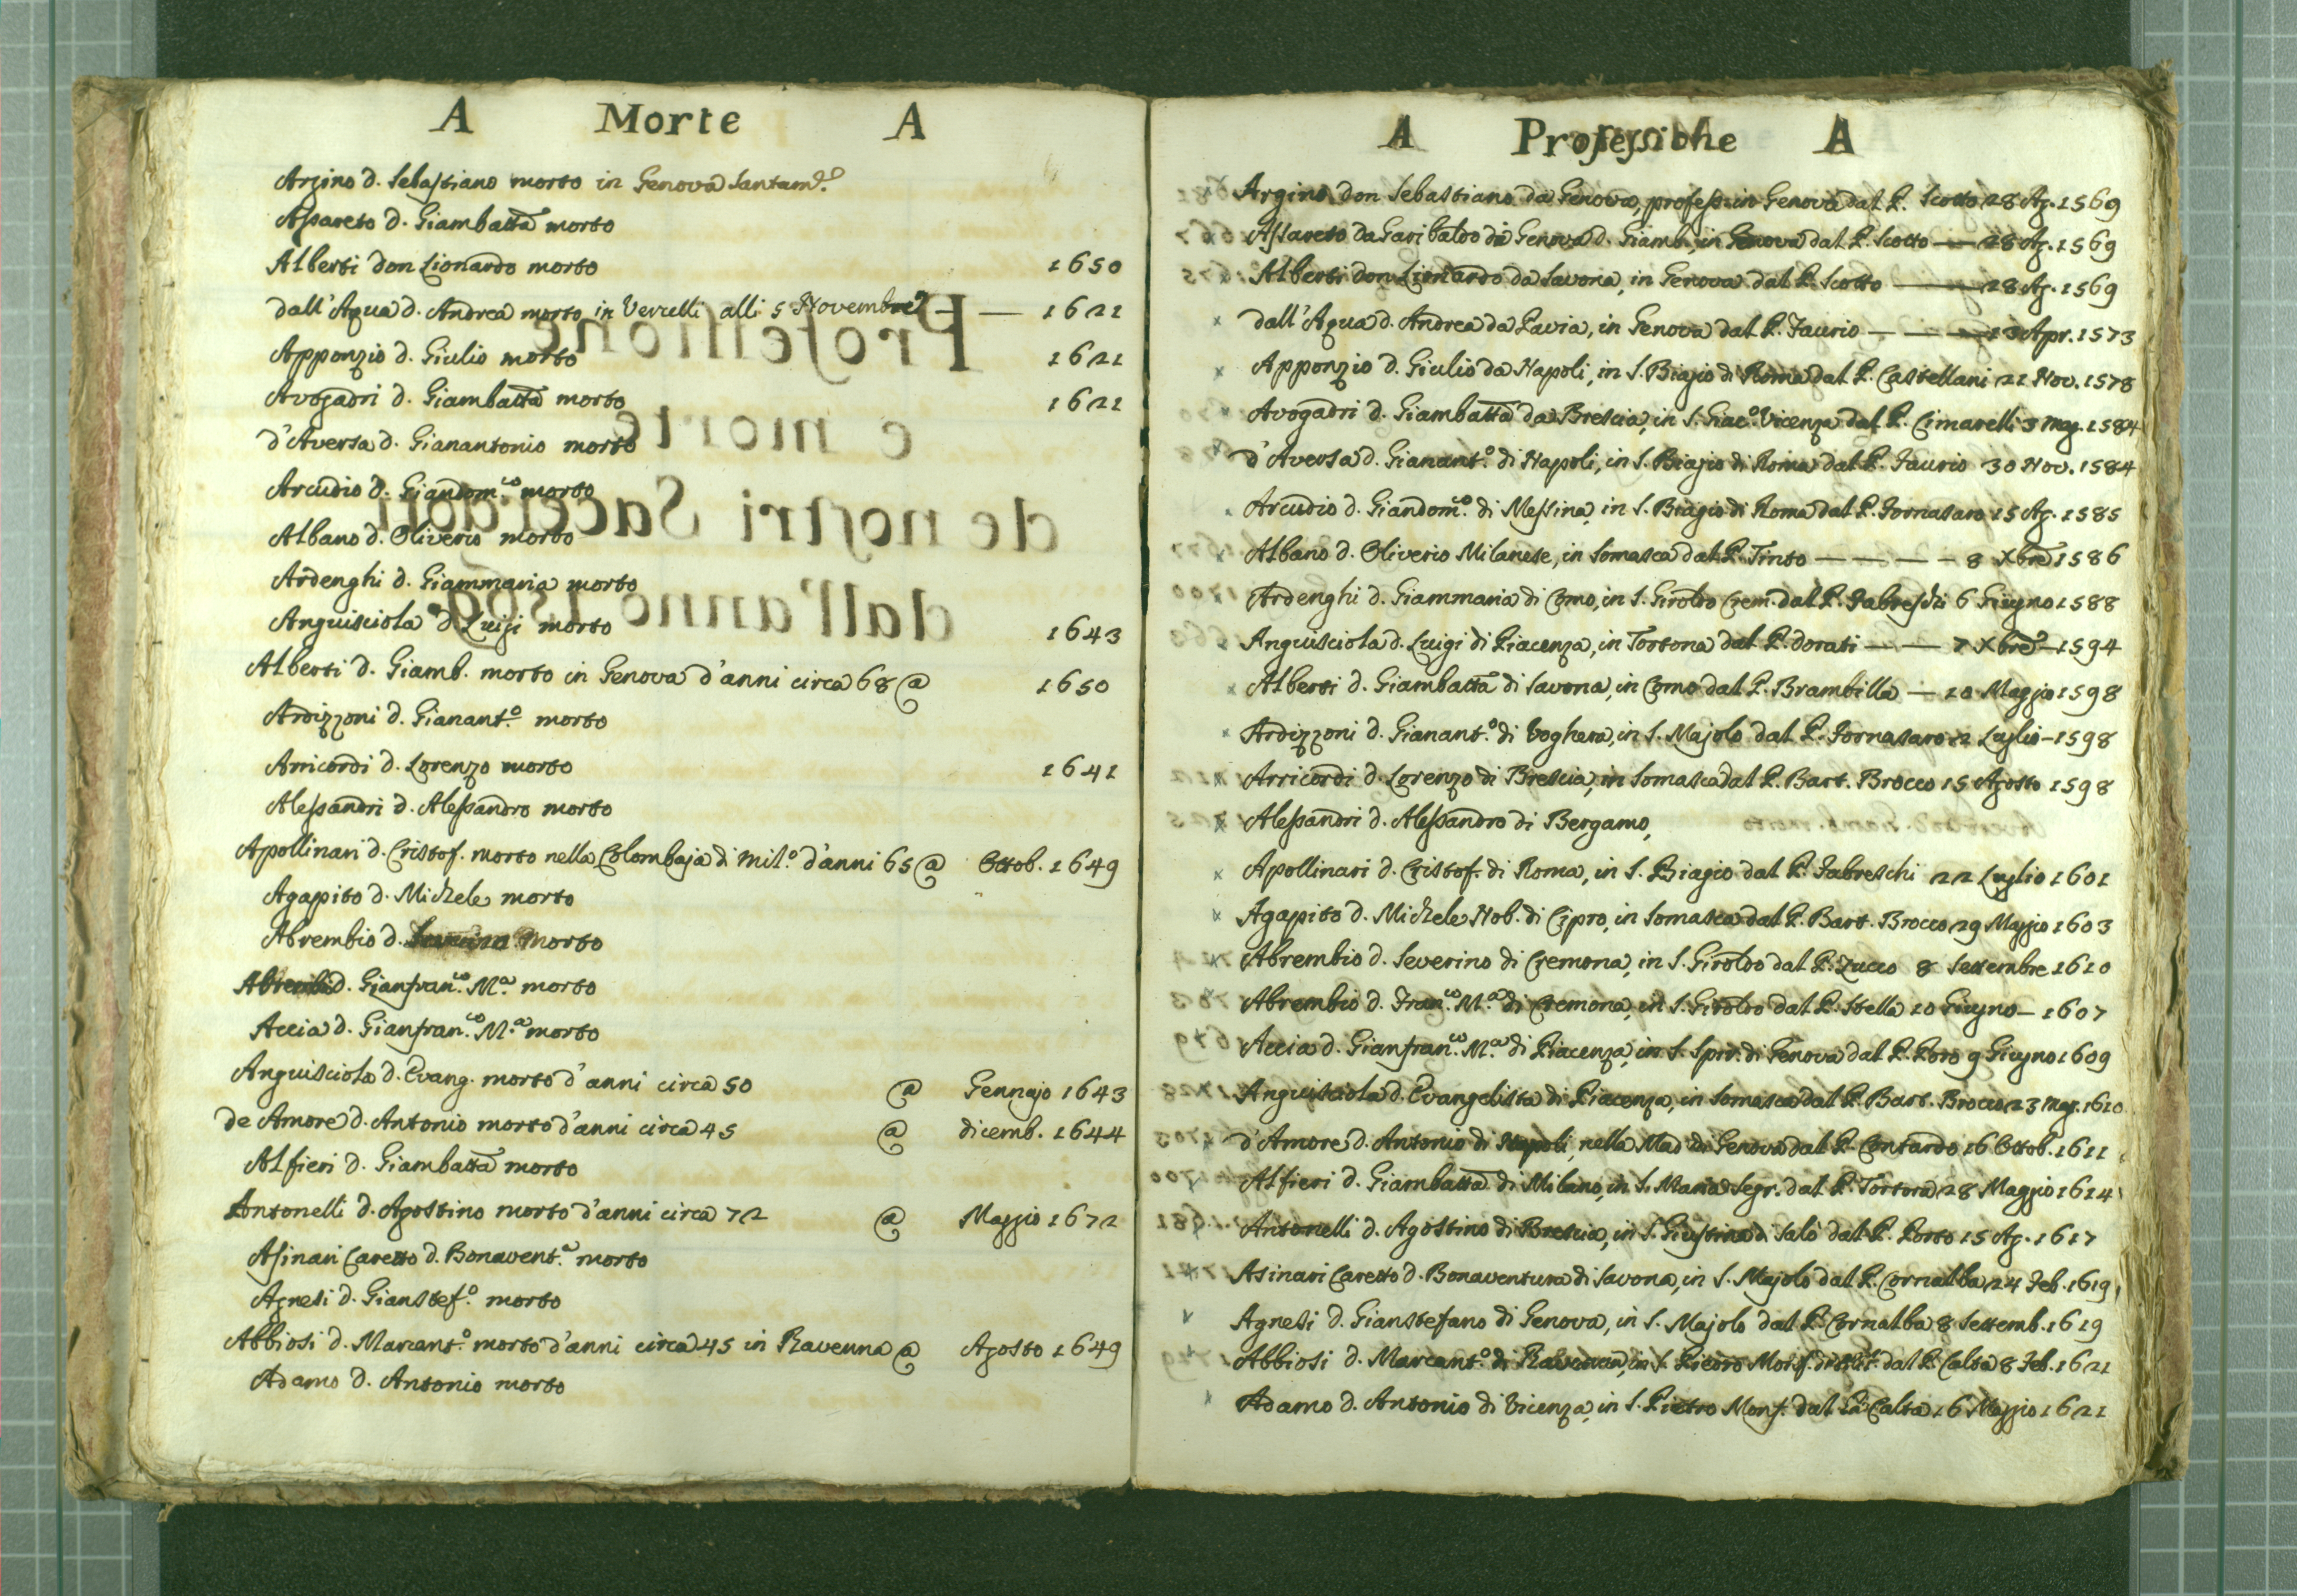 A Morte A
Argino d. Sebastiano morto in Genova Santam.e
Assareto d. Giambatta morto
Alberti don Lionardo morto 1650
dall'Aqua d. Andrea morto in Vercelli alli 5 Novembre — — 1621
Apponzio d. Giulio morto 1621
Avogadri d. Giambatta morto 1621
d'Aversa d. Gianantonio morto
Arcudio d. Giandom.co morto
Albano d. Oliverio morto
Ardenghi d. Giammaria morto
Anguisciola d. Luigi morto 1643
Alberti d. Giamb. morto in Genova d'anni circa 68 @ 1650
Ardizzoni d. Gianant.o morto
Arricordi d. Lorenzo morto 1641
Alessandri d. Alessandro morto
Apollinari d. Cristof. morto nella Colombaja di Mil.o d'anni 65 @ Ottob. 1649
Agapito d. Michele morto
Abrembio d. morto
Abrembi d. Gianfran.co M.a morto
Accia d. Gianfran.co M.a morto
Anguisciola d. Evang. morto d'anni circa 50 @ Gennajo 1643
de Amore d. Antonio morto d'anni circa 45 @ dicemb. 1644
Alfieri d. Giambatta morto
Antonelli d. Agostino morto d'anni circa 72 @ Maggio 1672
Asinari Caretto d. Bonavent.a morto
Agnesi d. Gianstef.o morto
Abbiosi d. Marcant.o morto d'anni circa 45 in Ravenna @ Agosto 1649
Adamo d. Antonio morto
A Professione A
Argino don Sebastiano da Genova, profess. in Genova dal P. Scotto 28 Ag. 1569
Assareto da Garibaldo da Genova d. Giamb., in Genova dal P. Scotto — 28 Ag. 1569
Alberti don Lionardo da Savona, in Genova dal P. Scotto — 28 Ag. 1569
dall'Aqua d. Andrea da Pavia, in Genova dal P. Faurio — — — 13 Apr. 1573
Apponzio d. Giulio da Napoli, in S. Biagio di Roma dal P. Castellani 21 Nov. 1578
Avogadri d. Giambatta da Brescia, in S. Giac.o Vicenza dal P. Cimarelli 3 Mag. 1584
d'Aversa d. Gianant.o di Napoli, in S. Biagio di Roma dal P. Faurio 30 Nov. 1584
Arcudio d. Giandom.co di Messina, in S. Biagio di Roma dal P. Fornasaro 15 Ag. 1585
Albano d. Oliverio Milanese, in Somasca dal P. Tinto — — — — 8 Xbre 1586
Ardenghi d. Giammaria di Como, in S. Giroldo Crem. dal P. Fabreschi 6 Giugno 1588
Anguisciola d. Luigi di Piacenza, in Tortona dal P. dorati — — 7 Xbre — 1594
Alberti d. Giambatta di Savona, in Como dal P. Brambilla — 10 Maggio 1598
Ardizzoni d. Gianant.o di Voghera, in S. Majolo dal P. Fornasaro 2 Luglio — 1598
Arricordi d. Lorenzo di Brescia, in Somasca dal P. Bart. Brocco 15 Agosto 1598
Alessandri d. Alessandro di Bergamo,
Apollinari d. Cristof. di Roma, in S. Biagio dal P. Fabreschi 22 Luglio 1601
Agapito d. Michele Nob. di Cipro, in Somasca dal P. Bart. Brocco 29 Maggio 1603
Abrembio d. Severino di Cremona, in S. Giroldo dal P. Zucco 8 Settembre 1610
Abrembio d. Fran.co M.a di Cremona, in S. Giroldo dal P. Stella 10 Giugno — 1607
Accia d. Gianfran.co M.a di Piacenza, in S. Spir. di Genova dal P. Poro 9 Giugno 1609
Anguisciola d. Evangelista di Piacenza, in Somasca dal P. Bart. Brocco 23 Mag. 1610
d'Amore d. Antonio di Napoli, nella Mad. di Genova dal P. Contardo 16 Ottob. 1611
Alfieri d. Giambatta di Milano, in S. Maria Segr. dal P. Tortora 28 Maggio 1614
Antonelli d. Agostino di Brescia, in S. Giustina di Salò dal P. Porto 15 Ag. 1617
Asinari Caretto d. Bonaventura di Savona, in S. Majolo dal P. Cornalba 24 Feb. 1619
Agnesi d. Gianstefano di Genova, in S. Majolo dal P. Cornalba 8 Settemb. 1619
Abbiosi d. Marcant.o di Ravenna, in S. Pietro Monf. di Mil. dal P. Calta 8 Feb. 1621
Adamo d. Antonio di Vicenza, in S. Pietro Monf. dal P. Calta 16 Maggio 1621